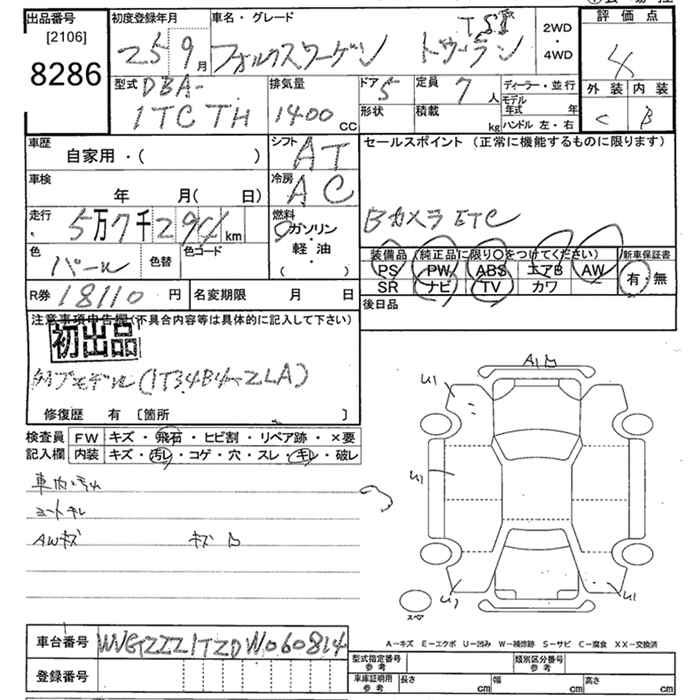 出品番号 初度登録年月 車名・グレード 評価点
[2106] 25 9月 フォルクスワーゲン トゥーラン TSI 2WD・4WD 4
8286
型式 DBA-1TCTH 排気量 1400 CC ドア 5 定員 7人 ディーラー・並行 外装 内装
形状 積載 kg モデル年式 年 C B
ハンドル 左・右
車歴 自家用・( ) シフト AT セールスポイント (正常に機能するものに限ります)
車検 年 月( 日) 冷房 AC
走行 5万7千29 km 燃料 ガソリン・軽油・( ) Bカメラ ETC
色 パール 色替 色コード 装備品 (純正品に限り○をつけてください) 新車保証書
PS PW ABS エアB AW 有・無
SR ナビ TV カワ
R券 18110円 名変期限 月 日 後日品
注意事項申告欄(不具合内容等は具体的に記入して下さい)
初出品
(1T34B4-ZLA)
修復歴 有 [箇所 ]
検査員 FW キズ・飛石・ヒビ割・リペア跡・×要
記入欄 内装 キズ・汚レ・コゲ・穴・スレ・キレ・破レ
車内・汚れ
シートキレ
AWキズ キズ
U1
U1
U1
スペア
A-キズ E-エクボ U-凹み W-補修跡 S-サビ C-腐食 XX-交換済
車台番号 WVGZZZ1TZDW060814
登録番号
型式指定番号 参考 類別区分番号 参考
車庫証明用 参考 長さ cm 幅 cm 高さ cm